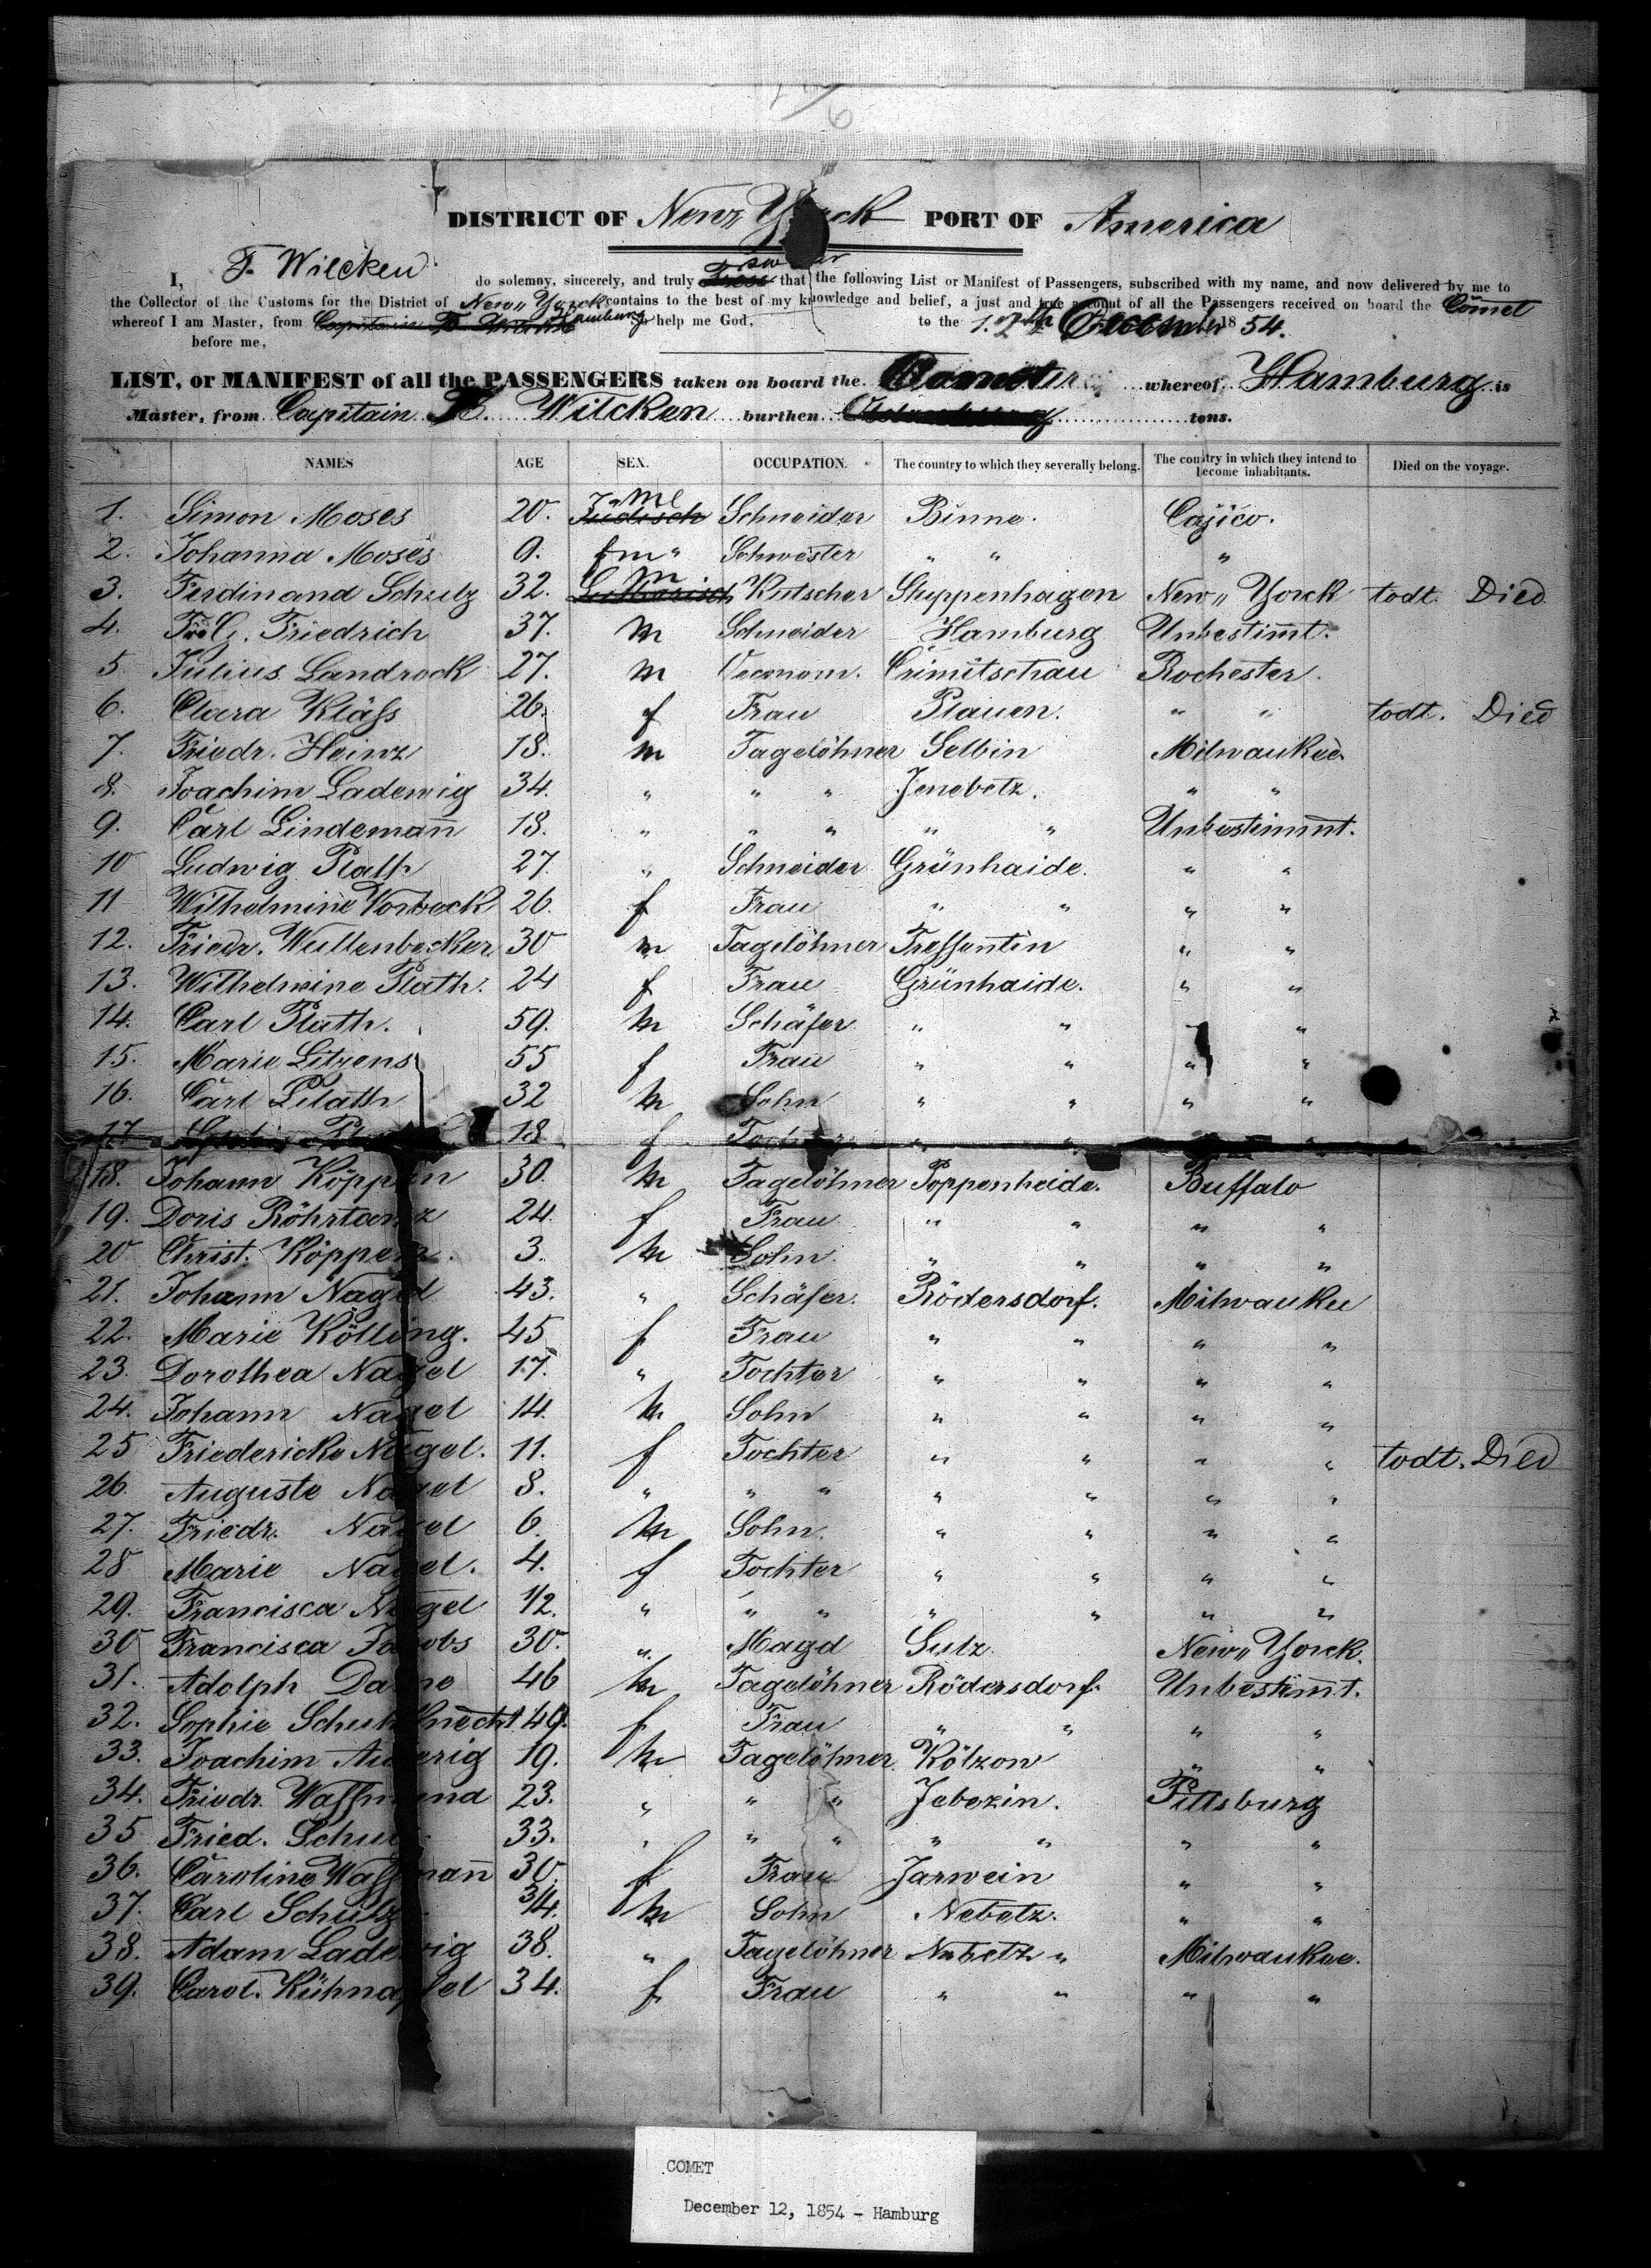 DISTRICT OF New, Yorck PORT OF America
I, F. Wilcken do solemny, sincerely, and truly swear that the following List or Manifest of Passengers, subscribed with my name, and now delivered by me to
the Collector of the Customs for the District of New,, Yorck contains to the best of my knowledge and belief, a just and true account of all the Passengers received on board the Comet
whereof I am Master, from Hamburg help me God. to the 1. December 18 54.
before me,
LIST, or MANIFEST of all the PASSENGERS taken on board the whereof Hamburg is
Master, from Capitain Wilcken burthen tons.
NAMES AGE SEX. OCCUPATION. The country to which they severally belong. The country in which they intend to become inhabitants. Died on the voyage.
1. Simon Moses 20. Jüdisch Schneider Binne.
2. Johanna Moses 9. Schwester " " "
3. Ferdinand Schulz 32. m Kutscher Stuppenhagen New,, Yorck todt. Died
4. G. Friedrich 37. m Schneider Hamburg Unbestimt.
5 Julius Landrock 27. m Oeconom. Crimitschau Rochester.
6. Clara Kläss 26. f Frau Plauen. " " todt. Died
7. Friedr. Heinz 18. m Tagelöhner Selbin Milwaukee.
8. Joachim Ladewig 34. " " " Jenebetz. " "
9. Carl Lindemann 18. " " " " " Unbestimmt.
10 Ludwig Plath 27. " Schneider Grünhaide. " "
11 Wilhelmine Vorbeck 26. f Frau " " " "
12. Friedr. Wullenbecker 30 m Tagelöhner Tressentin " "
13. Wilhelmine Plath. 24 f Frau Grünhaide. " "
14. Carl Plath. 59. m Schäfer " " " "
15. Marie Litzens 55 f Frau " " " "
16. Carl Plath 32 m Sohn " " " "
17 18 f Tochter " "
18. Johann Köppen 30. m Tagelöhner Poppenheide. Buffalo
19. Doris Röhrtanz 24. f Frau " " " "
20 Christ. Köppen. 3. m Sohn. " " " "
21. Johann Nagel 43. " Schäfer. Rödersdorf. Milwaukee
22. Marie Kölling. 45 f Frau " " " "
23. Dorothea Nagel 17. " Tochter " " " "
24. Johann Nagel 14. m Sohn " " " "
25 Friedericke Nagel. 11. f Tochter " " " " todt. Died
26. Auguste Nagel 8. " " " " " " "
27. Friedr. Nagel 6. m Sohn. " " " "
28 Marie Nagel. 4. f Tochter " " " "
29. Francisca Nagel 1/2. " " " " " " "
30 Francisca Jacobs 30. " Magd Sulz. New,, Yorck.
31. Adolph 46 m Tagelöhner Rödersdorf. Unbestimt.
32. Sophie Schuhknecht 49. f Frau " " " "
33. Joachim 19. m Tagelöhner Kölzon " "
34. Friedr. 23. " " " Jebezin. Pittsburg
35 Fried. 33. " " " " " " "
36. Caroline Wassmann 30. f Frau Jarwein " "
37. Carl Schulz 3/4. m Sohn Nebetz. " "
38. Adam Ladewig 38. " Tagelöhner Nebetz " Milwaukee.
39. Carol. 34. f Frau " " " "
COMET
December 12, 1854 - Hamburg